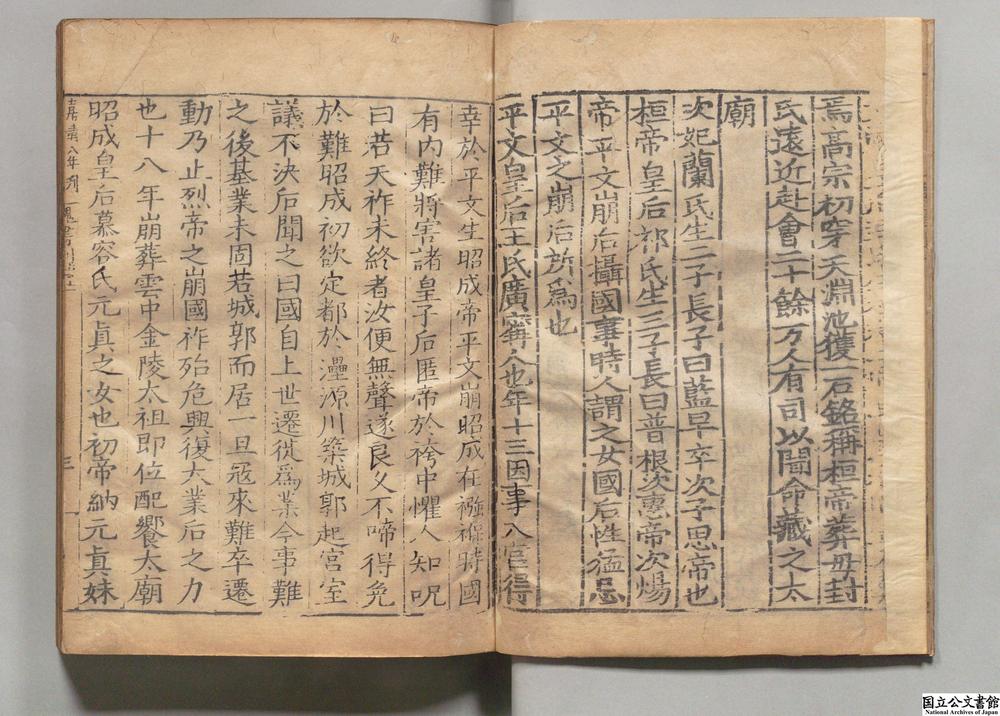 焉高宗初穿天淵池獲一石銘稱桓帝葬母封
氏遠近赴會二十餘万人有司以聞命藏之太
廟
次妃蘭氏生二子長子曰藍早卒次子思帝也
桓帝皇后祁氏生三子長曰普根次惠帝次煬
帝平文崩后攝國事時人謂之女國后性猛忌
平文之崩后所為也
平文皇后王氏廣寗人也年十三因事入宫得
幸於平文生昭成帝平文崩昭成在襁褓時國
有内難將害諸皇子后匿帝於袴中懼人知呪
曰若天祚未終者汝便無聲遂良久不啼得免
於難昭成初欲定都於灅源川築城郭起宫室
議不決后聞之曰國自上世遷徙爲業今事難
之後基業未固若城郭而居一旦寇來難卒遷
動乃止烈帝之崩國祚殆危興復大業后之力
也十八年崩葬雲中金陵太祖即位配饗太廟
昭成皇后慕容氏元真之女也初帝納元真妹
嘉靖八年刊
三
国立公文書館
National Archives of Japan